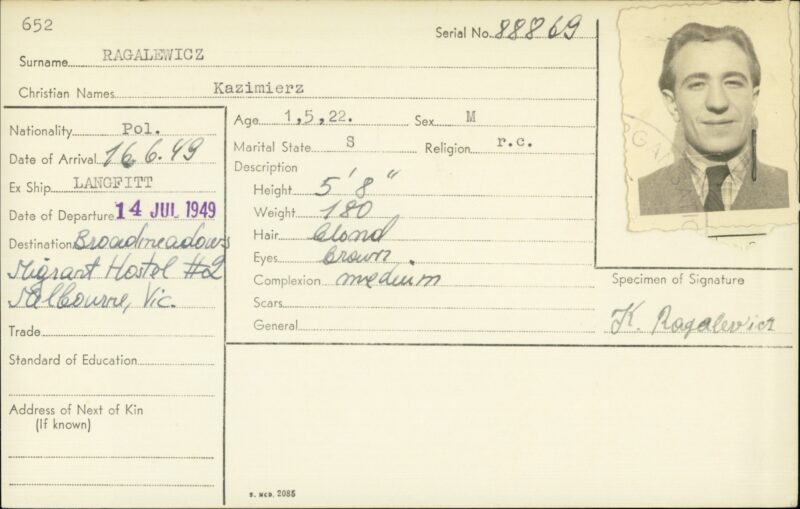 652
Serial No. 88869
Surname RAGALEWICZ
Christian Names Kazimierz
Nationality Pol.
Date of Arrival 16.6.49
Ex Ship LANGFITT
Date of Departure 14 JUL 1949
Destination Broadmeadows
Migrant Hostel #2
Melbourne, Vic.
Trade
Standard of Education
Address of Next of Kin
(If known)
Age 1,5,22. Sex M
Marital State S Religion r.c.
Description
Height 5'8"
Weight 180
Hair blond
Eyes brown
Complexion medium
Scars
General
Specimen of Signature
K. Ragalewicz
S. MCD. 2085